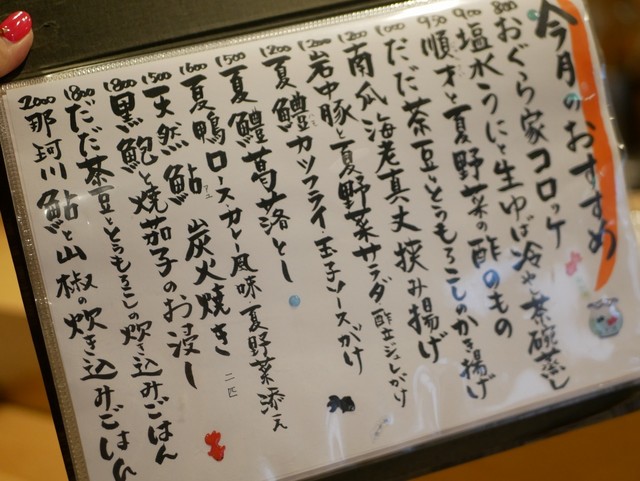 今月のおすすめ
800 おぐら家コロッケ
900 塩水うにと生ゆば冷や茶碗蒸し
950 順才と夏野菜の酢のもの
1000 だだ茶豆ととうもろこしのかき揚げ
1200 南瓜海老真丈挟み揚げ
1200 岩中豚と夏野菜サラダ 酢立ジュレがけ
1200 夏鱧カツフライ・玉子ソースがけ
1500 夏鱧葛落とし
1600 夏鴨ロース・カレー風味 夏野菜添え
1500 天然鮎 炭火焼き 二匹
1800 黒鮑と焼茄子のお浸し
1800 だだ茶豆ととうもろこしの炊き込みごはん
2000 那珂川鮎と山椒の炊き込みごはん